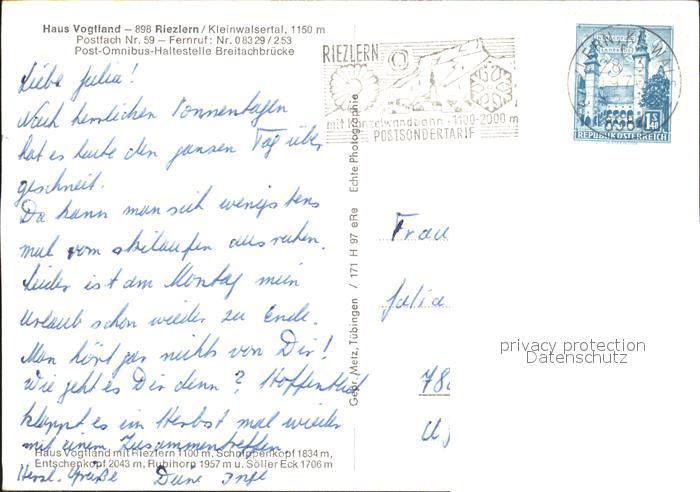 Haus Vogtland – 898 Riezlern / Kleinwalsertal, 1150 m
Postfach Nr. 59 – Fernruf: Nr. 08329/253
Post-Omnibus-Haltestelle Breitachbrücke
Liebe Julia!
Nach herrlichen Sonnentagen
hat es heute den ganzen Tag über
geschneit.
Da kann man sich wenigstens
mal vom skilaufen ausruhen.
Leider ist am Montag mein
Urlaub schon wieder zu Ende.
Man hört gar nichts von Dir!
Wie geht es Dir denn? Hoffentlich
klappt es im Herbst mal wieder
mit einem Zusammentreffen
Haus Vogtland mit Riezlern 1100 m, Schnippenkopf 1834 m,
Entschenkopf 2043 m, Rubihorn 1957 m u. Söller Eck 1706 m
Herzl. Grüße Deine Inge
Gebr. Metz, Tübingen / 171 H 97 eRe Echte Photographie
RIEZLERN
mit Kanzelwandbahn · 1100-2000 m
POSTSONDERTARIF
1S40
REPUBLIK ÖSTERREICH
Frau
Julia
78
privacy protection
Datenschutz